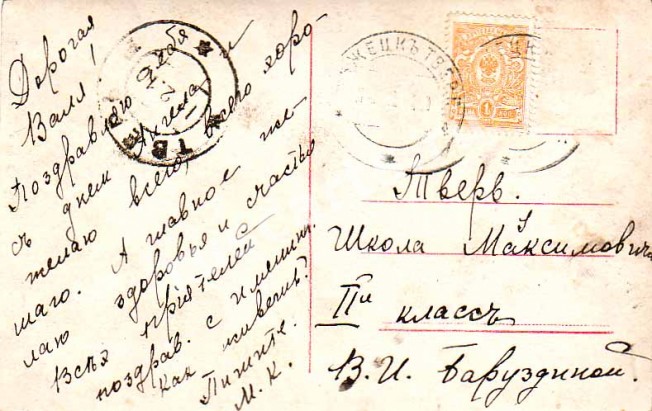 Дорогая
Валя!
Поздравляю тебя
съ днем Ангела и
желаю всего, всего хоро-
шаго. А главное же-
лаю здоровья и счастья
Всѣх приятелей
поздрав. с имянин.
Как живешь?
Пишите.
М. К.
ЖЕЦКЪ ТВЕР
ЦК
ТВ
1
Тверь.
Школа Максимовича
II й классъ
В. И. Баруздиной.